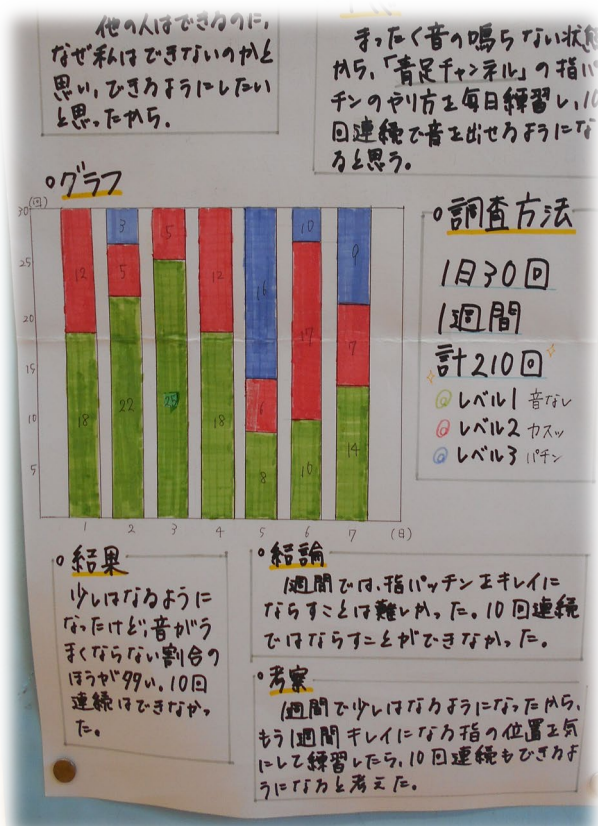 他の人はできるのに、
なぜ私はできないのかと
思い、できるようにしたい
と思ったから。
まったく音の鳴らない状態
から、「青足チャンネル」の指パ
チンのやり方を毎日練習し、10
回連続で音を出せるようにな
ると思う。
グラフ
(回)
30
25
20
15
10
5
12
18
3
5
22
5
25
12
18
16
6
8
10
17
10
9
7
14
1 2 3 4 5 6 7 (日)
調査方法
1日30回
1週間
計210回
レベル1 音なし
レベル2 カスッ
レベル3 パチン
結果
少しはなるように
なったけど、音がう
まくならない割合の
ほうが多い。10回
連続はできなかっ
た。
結論
1週間では、指パッチンをキレイに
ならすことは難しかった。10回連続
ではならすことができなかった。
考察
1週間で少しはなるようになったから、
もう1週間キレイになる指の位置を気
にして練習したら、10回連続もできるよ
うになると考えた。